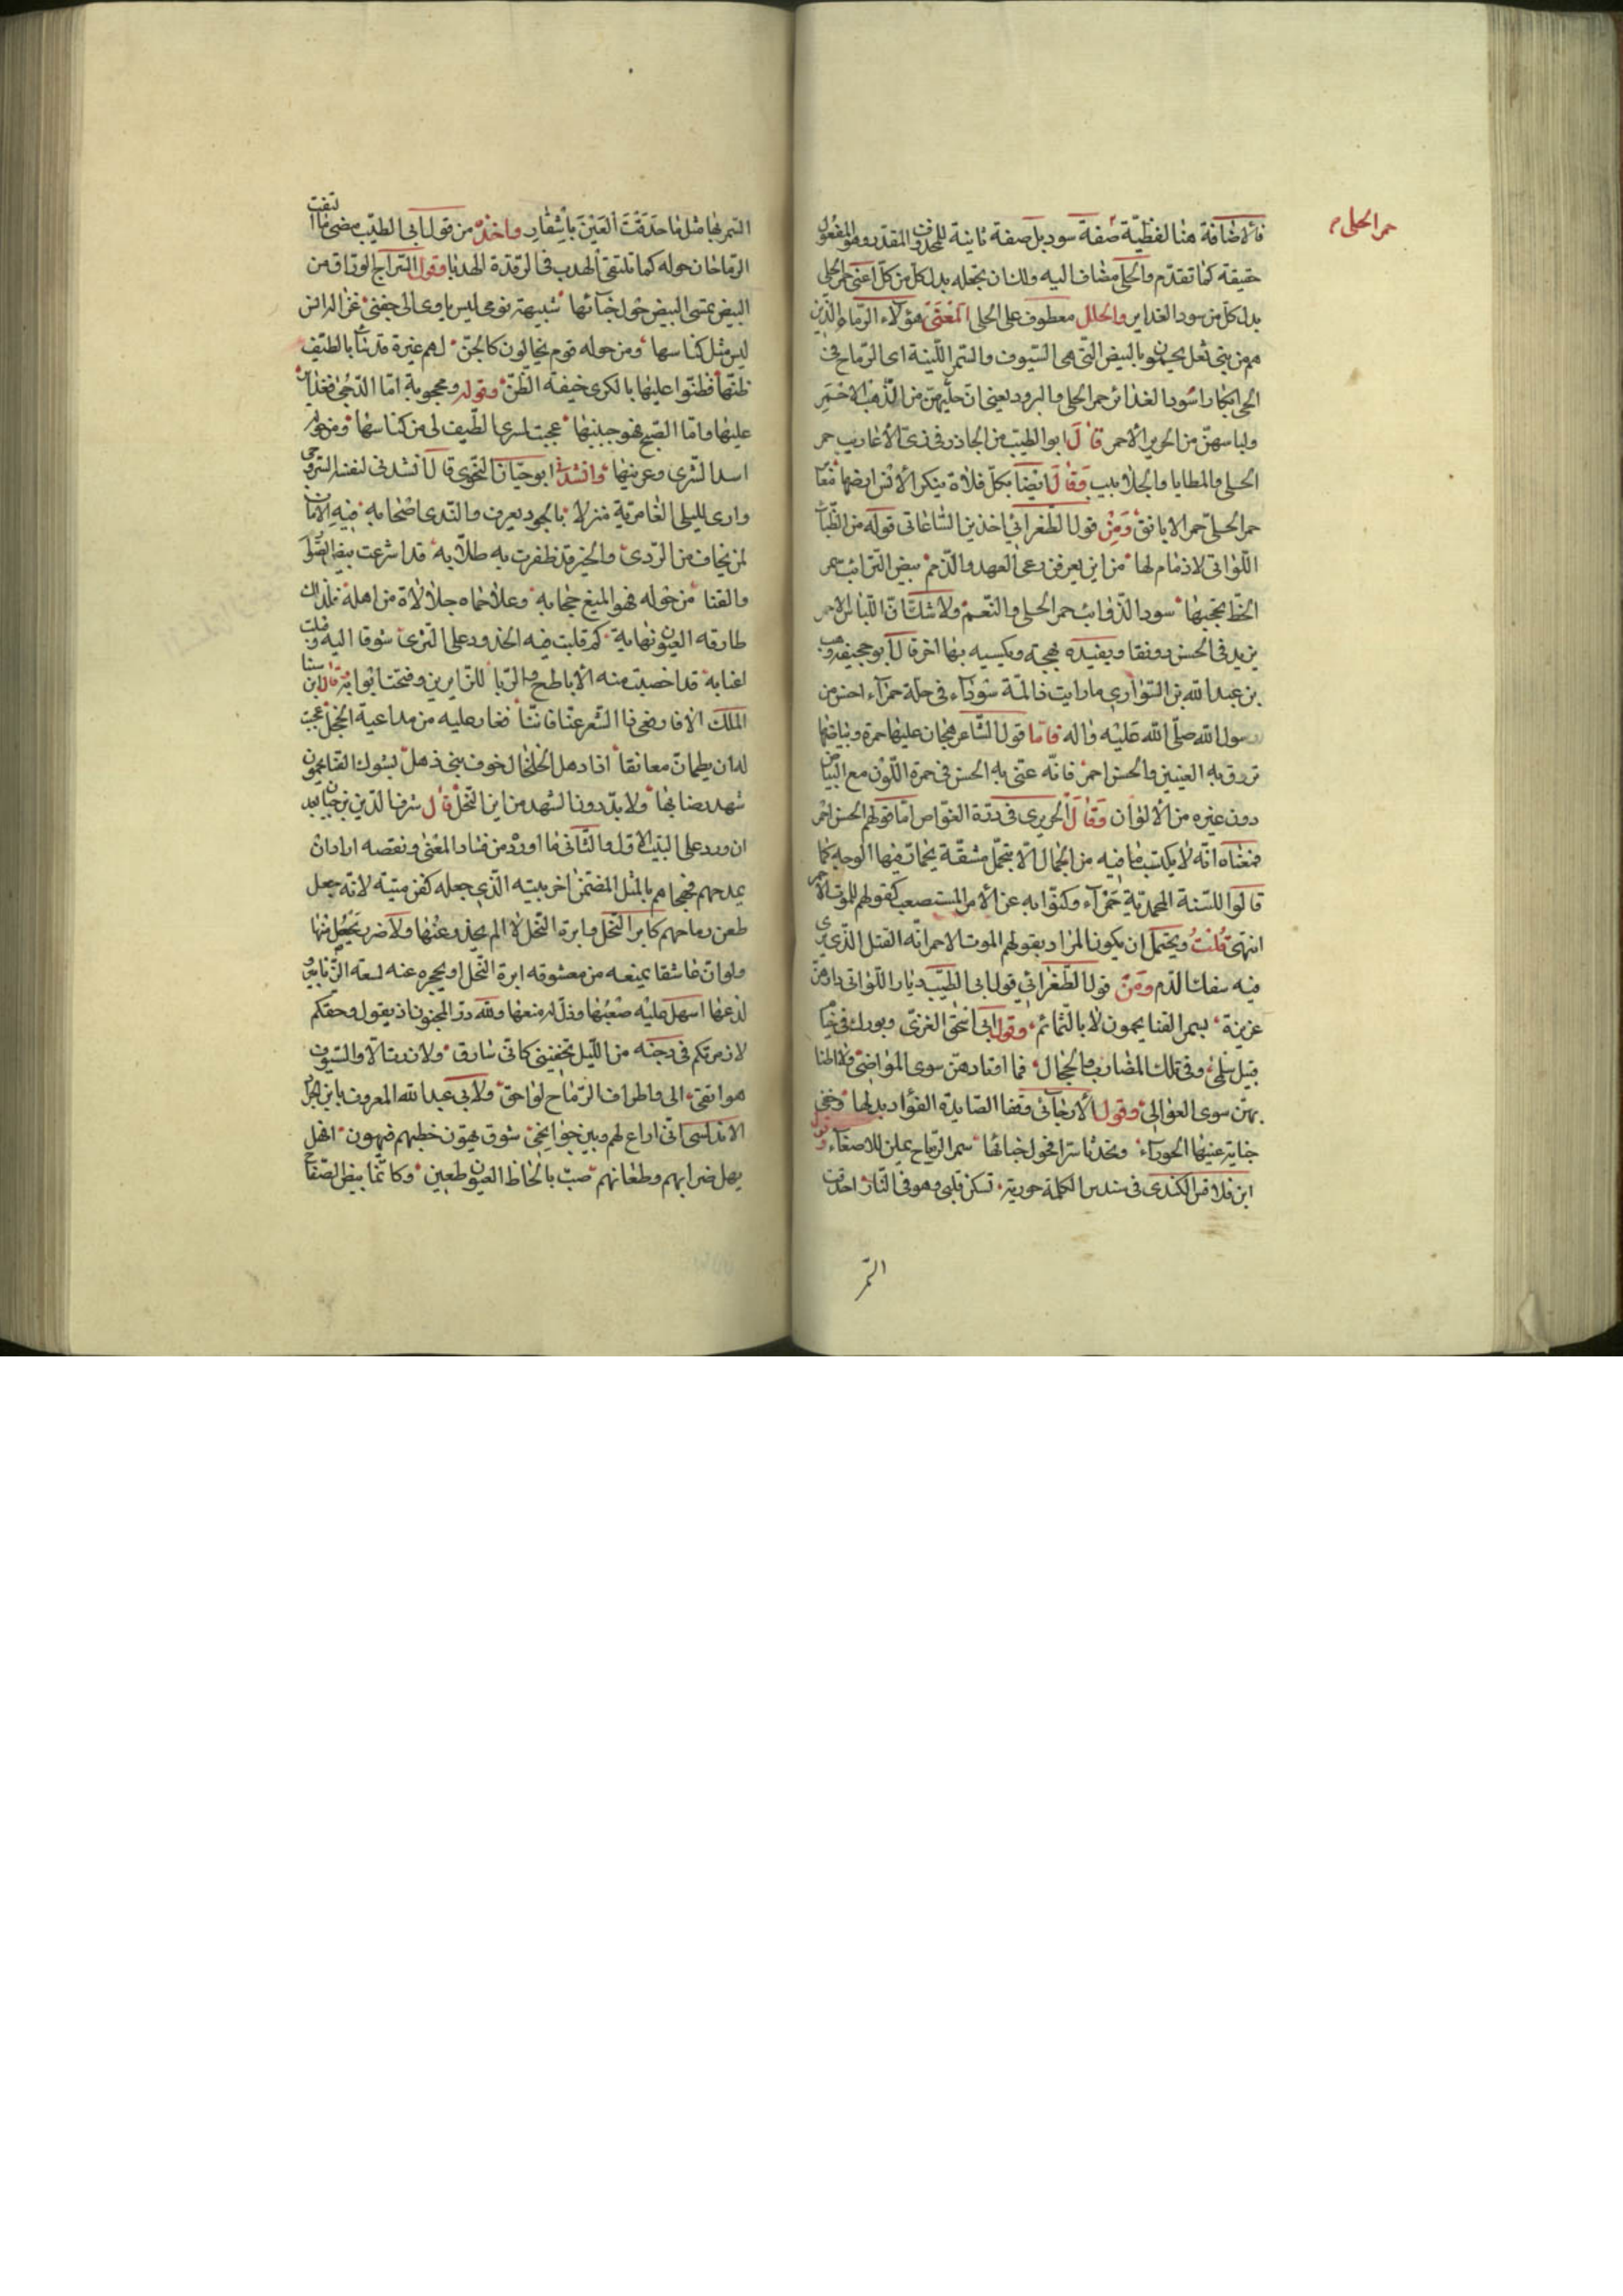 حمر الحلى
فالاضافة هنا لفظية صفة سود بل صفة ثانية للمحذوف المقدر وهو المفعول
حقيقة كما تقدم والحلى مضاف اليه ولك ان تجعله بدل كل من كل اعنى حمر الحلى
بدل كل من سود الغداير والحلل معطوف على الحلى المعنى هؤلاء الرماة الذين
هم من بنى ثعل يحمون بالبيض التى هى السيوف والسمر اللينة اى الرماح فى
الحى ابكارا سود الغدائر حمر الحلى والبرود يعنى ان حليهن من الذهب الاحمر
ولباسهن من الحرير الاحمر قال ابو الطيب من الجاذر فى زى الاعاريب حمر
الحلى والمطايا والجلابيب وقال ايضا بكل فلاة ينكر الانس ارضها ظعائن
حمر الحلى حمر الايانق ومن قول الطغرائى اخذ بن الساعاتى قوله من الظبيات
اللواتى لا ذمام لها من اين يعرفن رعى العهد والذمم بيض الترائب سمر
الخط تحجبها سود الذوائب حمر الحلى والنعم ولا شك ان اللباس الاحمر
يزيد فى الحسن رونقا ويفيده بهجة ويكسيه بها اخر قال ابو جحيفة وهب
بن عبد الله بن السوارى ما رايت ذا لمة سوداء فى حلة حمراء احسن من
رسول الله صلى الله عليه واله فاما قول الشاعر هجان عليها حمرة وبياضها
تروق به العينين والحسن احمر فانه عنى به الحسن فى حمرة اللون مع البياض
دون غيره من الالوان وقال الحريرى فى درة الغواص اما قولهم الحسن احمر
فمعناه انه لا يكتسب ما فيه من الجمال الا بتحمل مشقة يحمار فيها الوجه كما
قالوا للسنة المجدبة حمراء وكنوا به عن الامر المستصعب كقولهم الموت الاحمر
انتهى قلت ويحتمل ان يكون المراد بقولهم الموت الاحمر انه القتل الذى يرى
فيه سفك الدم ومن قول الطغرائى قول ابى الطيب ديار اللواتى دارهن
عزيزة بسمر القنا يحمون لا بالتمائم وقول ابى اسحق الغزى وبورك فى خيام
قبيل سلمى وفى تلك المضارب والحجال فما اوتادهن سوى المواضى ولا اطنا
بهن سوى العوالى وقول الارجانى وقفا الصايدة الفؤاد بدلها وخفى
جناية عينها الحوراء وتحدثا سرا فحول خبائها سمر الرماح يملن للاصغاء وقول
ابن قلاقس الكندى فى سندس الكلة حورية تسكن قلبى وهو فى النار احدقت
السمر
السمر بها مثل ما حدقت العين باشفار واخذه من قول ابى الطيب مضى بعد ما التفت
الرماحان حوله كما تلتقى الهدب فى الرقدة الهدبا وقول السراج الوراق من
البيض تمسى البيض حول خبائها شبيهة نومى ليس ياوى الى جفنى غزال
ليس مثل كناسها ومن حوله قوم يخالون كالجن لهم غيرة قد نبأ بالطيف
ظنها فظنوا عليها بالكرى خيفة الظن وقوله ومحجوبة اما الدجى فغدائر
عليها واما الصبح فهو جبينها عجبت لمسرى الطيف لى من كناسها ومن حوله
اسد الشرى وعرينها وانشد ابو حيان النحوى قال انشدنى لنفسه السروجى
وارى لليلى العامرية منزلا بالجود يعرف والندى اصحابه فيه الامان
لمن يخاف من الردى والخير قد ظفرت به طلابه قد اشرعت بيض الصوارم
والقنا من حوله فهو المنيع حجابه وعلا حماه جلالة من اهله فلذاك
طارقه العيون تهابه كم قلبت فيه الخدود على الثرى شوقا اليه وقبلت
اعتابه قد اخصبت منه الاباطح والربا للزايرين وفتحت ابوابه وقال ابن سنا
الملك
لدان يطمان معانقا اذا دهل الخلخال خوف بنى ذهل بشوك القنا يحمون
شهد رضابها ولا بد دون الشهد من ابر النحل قال شرف الدين بن جبارة بعد
ان ورد على البيت الاول والثانى ما اورد من فساد المعنى ونقصه اراد ان
يمدحهم فهجاهم بالمثل المضمن اخر بيته الذى جعله كفن ميته لانه جعل
طعن رماحهم كابر النحل وابرة النحل لا الم يحذر عنها ولا ضر يتحمل منها
ولو ان عاشقا يمنعه من معشوقه ابرة النحل او يحجره عنه لسعة الزنابير
لذعها اسهل عليه صعبها وذلل له منعها ولله در المجنون اذ يقول وحقكم
لازرتكم فى دجنة من الليل تخفينى كانى سارق ولا زرت الا والسيوف
هواتف الى واطراف الرماح لواحق ولابى عبد الله المعروف بابن
الاندلسى انى اراع لهم وبين جوانحى شوق يهون خطبهم فيهون انى
يهل ضرابهم وطعانهم صب بالحاظ العيون طعين وكانما بيض الصفاح